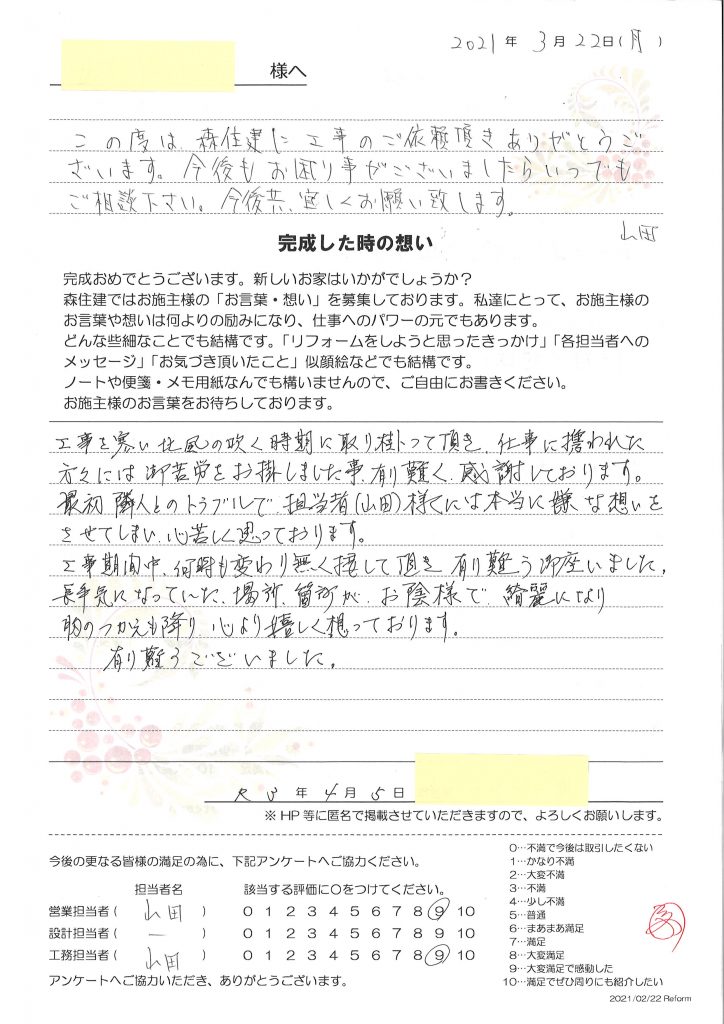 2021年 3月22日(月)
様へ
この度は 森住建に工事のご依頼頂きありがとうご
ざいます。今後もお困り事がございましたらいつでも
ご相談下さい。今後共、宜しくお願い致します。
山田
完成した時の想い
完成おめでとうございます。新しいお家はいかがでしょうか？
森住建ではお施主様の「お言葉・想い」を募集しております。私達にとって、お施主様の
お言葉や想いは何よりの励みになり、仕事へのパワーの元でもあります。
どんな些細なことでも結構です。「リフォームをしようと思ったきっかけ」「各担当者への
メッセージ」「お気づき頂いたこと」似顔絵などでも結構です。
ノートや便箋・メモ用紙なんでも構いませんので、ご自由にお書きください。
お施主様のお言葉をお待ちしております。
工事を寒い北風の吹く時期に取り掛って頂き、仕事に携われた
方々には御苦労をお掛しました事、有り難く、感謝しております。
最初 隣人とのトラブルで、担当者(山田)様には本当に嫌な想いを
させてしまい、心苦しく思っております。
工事期間中、何時も変わり無く接して頂き 有り難う御座いました。
長年気になっていた、場所、箇所が、お陰様で 綺麗になり
胸のつかえも降り 心より嬉しく想っております。
有り難うございました。
R3年4月5日
※HP等に匿名で掲載させていただきますので、よろしくお願いします。
今後の更なる皆様の満足の為に、下記アンケートへご協力ください。
担当者名 該当する評価に○をつけてください。
営業担当者( 山田 ) 0 1 2 3 4 5 6 7 8 9 10
設計担当者( ー ) 0 1 2 3 4 5 6 7 8 9 10
工務担当者( 山田 ) 0 1 2 3 4 5 6 7 8 9 10
アンケートへご協力いただき、ありがとうございます。
0…不満で今後は取引したくない
1…かなり不満
2…大変不満
3…不満
4…少し不満
5…普通
6…まあまあ満足
7…満足
8…大変満足
9…大変満足で感動した
10…満足でぜひ周りにも紹介したい
2021/02/22 Reform